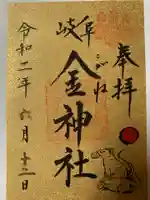 奉拝
岐阜
こがね
金神社
令和二年六月十二日